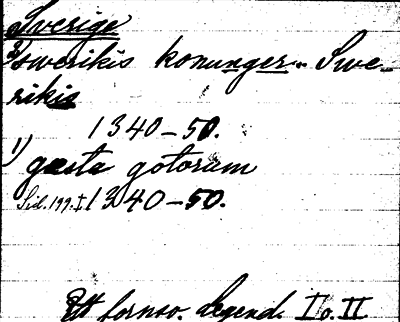 Sverige
3) swerikis konunger. Swe-
rikis
1340-50.
1) gøsta gotorum
Sid. 199. I. 1340-50.
Ett fornsv. Legend. I o. II